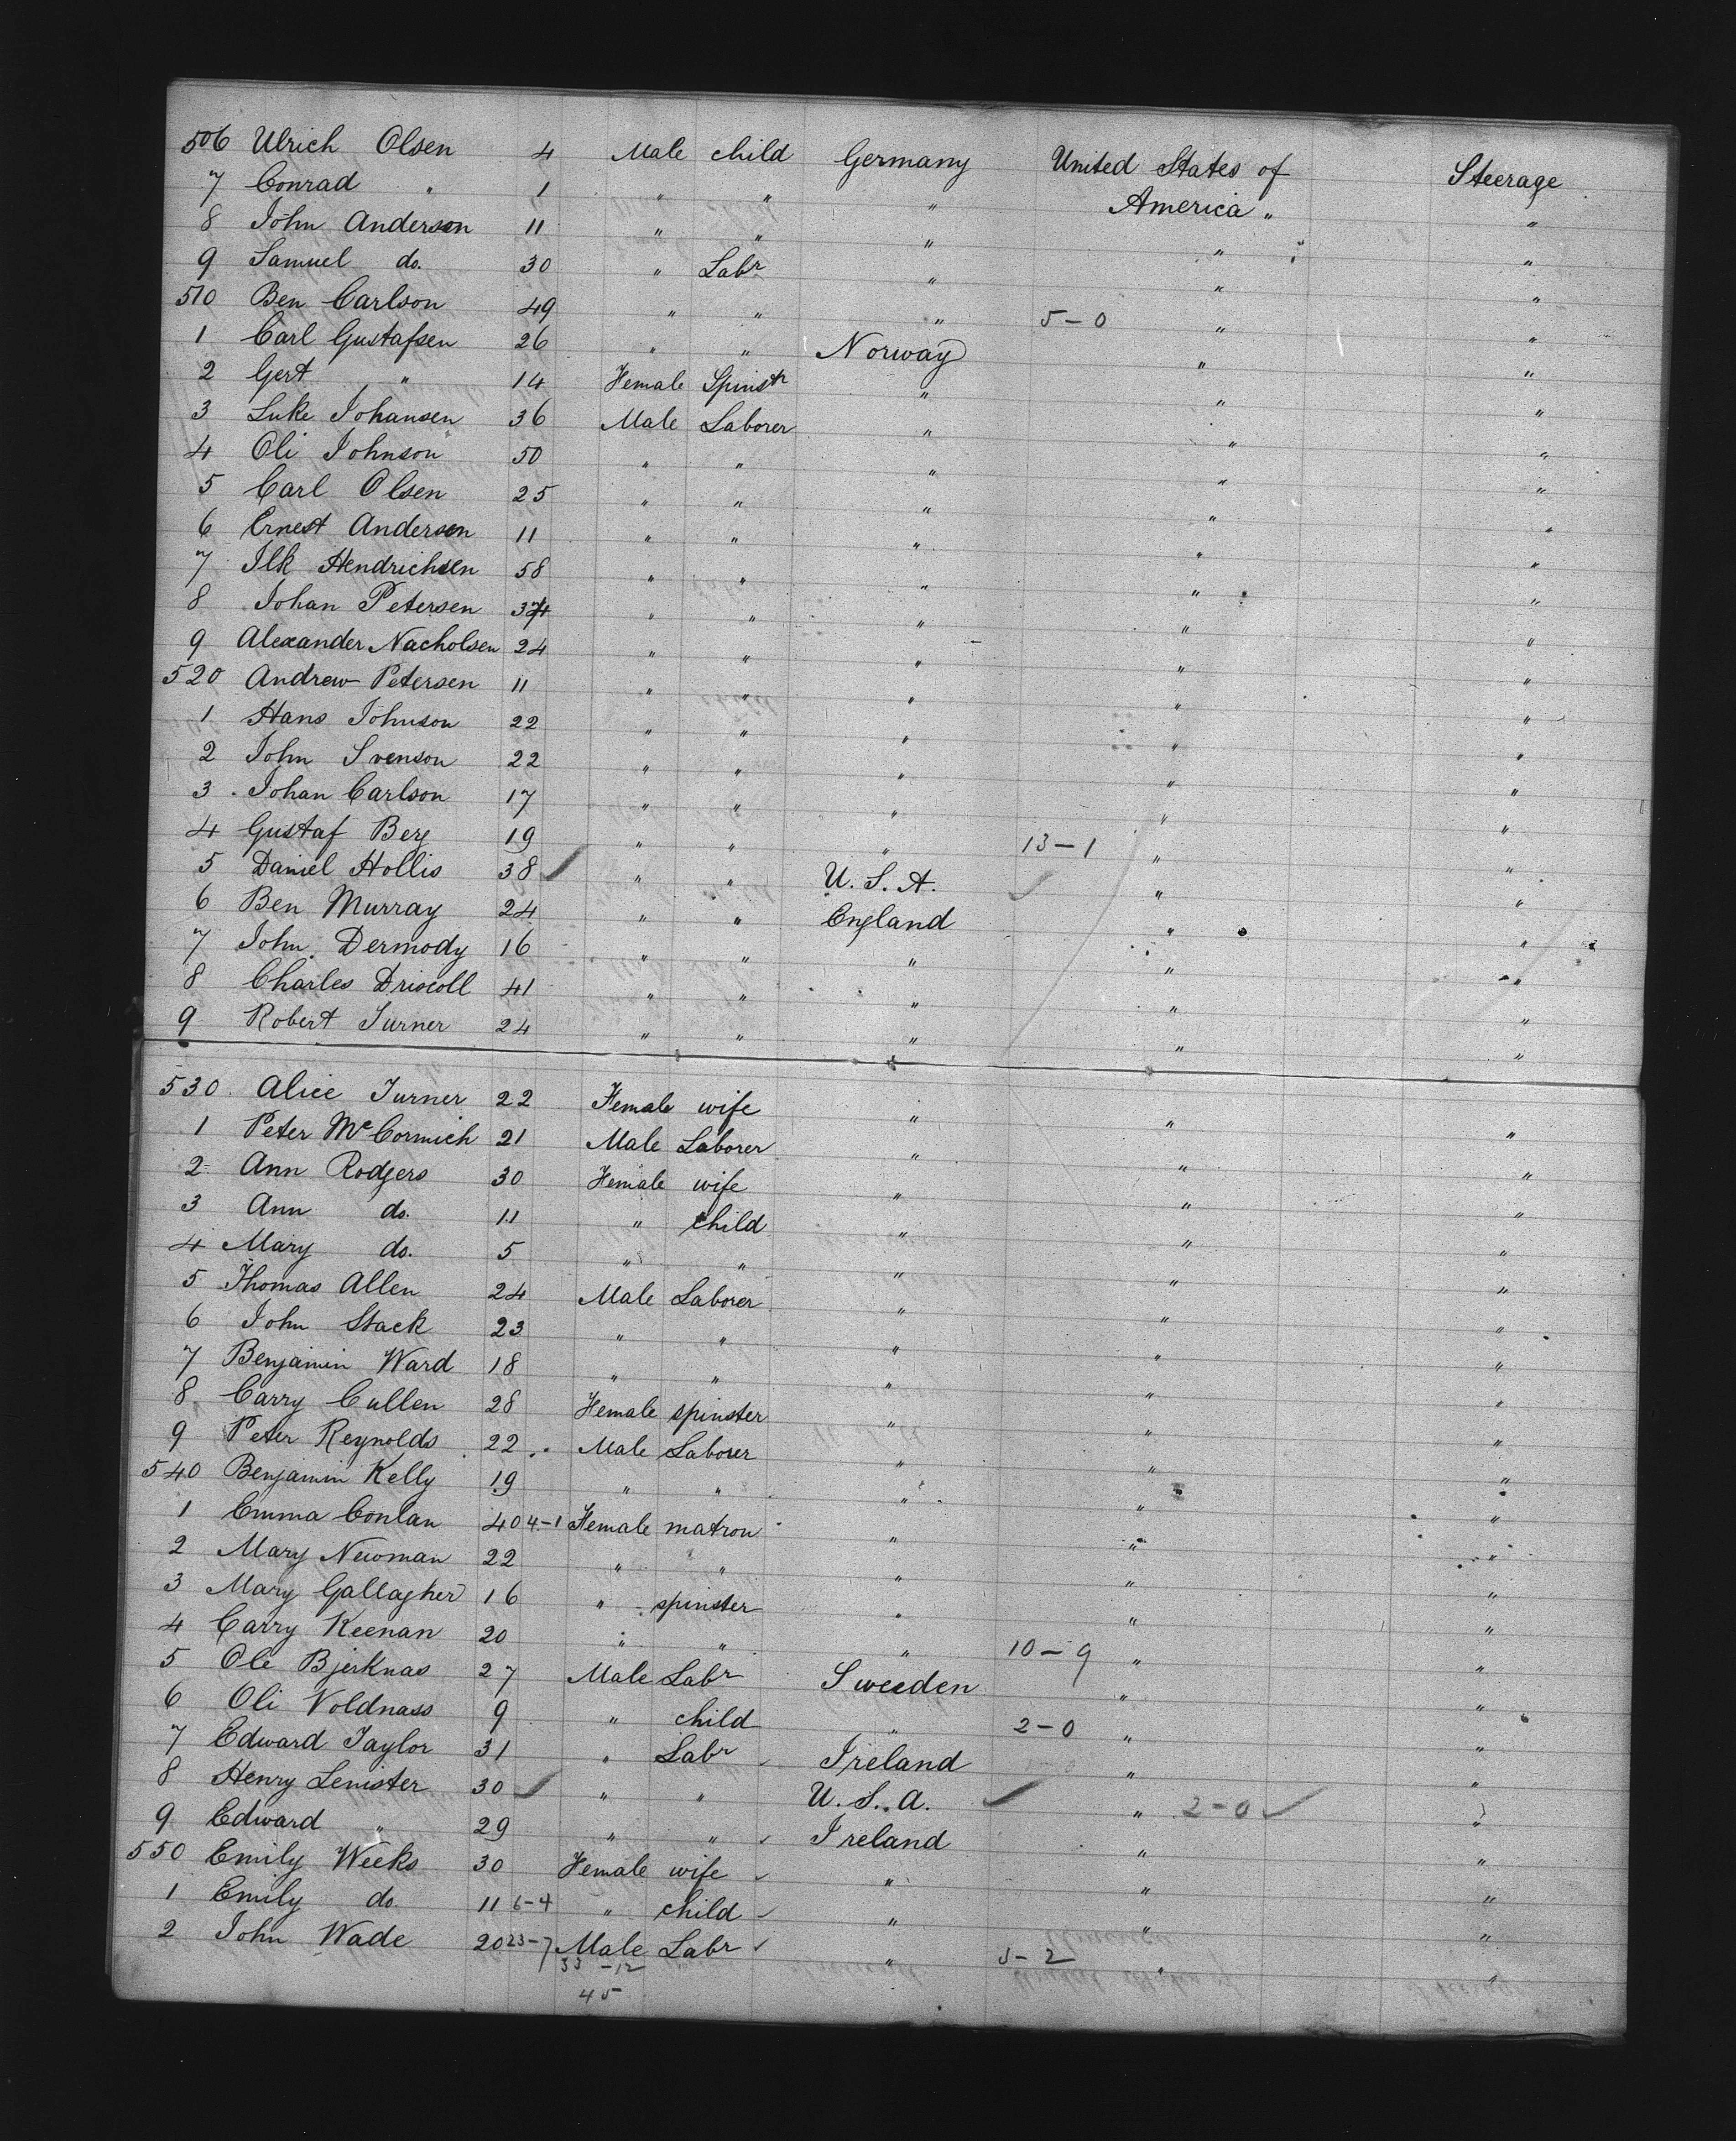 506 Ulrich Olsen 4 Male child Germany United States of Steerage
7 Conrad " 1 " " " America " "
8 John Andersen 11 " " " " "
9 Samuel do. 30 " Labr " " "
510 Ben Carlson 49 " " " 5-0 " "
1 Carl Gustafsen 26 " " Norway " "
2 Gert " 14 Female Spinstr " " "
3 Luke Johansen 36 Male Laborer " " "
4 Oli Johnson 50 " " " " "
5 Carl Olsen 25 " " " " "
6 Ernest Andersen 11 " " " " "
7 Ilk Hendrichsen 58 " " " " "
8 Johan Petersen " " " " "
9 Alexander Nacholsen 24 " " " " "
520 Andrew Petersen 11 " " " " "
1 Hans Johnson 22 " " " " "
2 John Svenson 22 " " " " "
3 Johan Carlson 17 " " " " "
4 Gustaf Berg 19 " " " 13-1 " "
5 Daniel Hollis 38 ✓ " " U.S.A. ✓ " "
6 Ben Murray 24 " " England " "
7 John Dermody 16 " " " " "
8 Charles Driscoll 41 " " " " "
9 Robert Turner 24 " " " " "
530 Alice Turner 22 Female wife " " "
1 Peter McCormich 21 Male Laborer " " "
2 Ann Rodgers 30 Female wife " " "
3 Ann do. 11 " child " " "
4 Mary do. 5 " " " " "
5 Thomas Allen 24 Male Laborer " " "
6 John Stack 23 " " " " "
7 Benjamin Ward 18 " " " " "
8 Carry Cullen 28 Female spinster " " "
9 Peter Reynolds 22 Male Laborer " " "
540 Benjamin Kelly 19 " " " " "
1 Emma Conlan 40 4-1 Female matron " " "
2 Mary Newman 22 " " " " "
3 Mary Gallagher 16 " spinster " " "
4 Carry Keenan 20 " " " 10-9 " "
5 Ole Bjerknas 27 Male Labr Sweeden " "
6 Oli Voldnass 9 " child " 2-0 " "
7 Edward Taylor 31 " Labr Ireland " "
8 Henry Lenister 30 ✓ " " U.S.A. ✓ " 2-0 ✓ "
9 Edward " 29 " " ✓ Ireland " "
550 Emily Weeks 30 Female wife ✓ " " "
1 Emily do. 11 6-4 " child ✓ " " "
2 John Wade 20 23-7 Male Labr ✓ " 5-2 " "
33-12
45